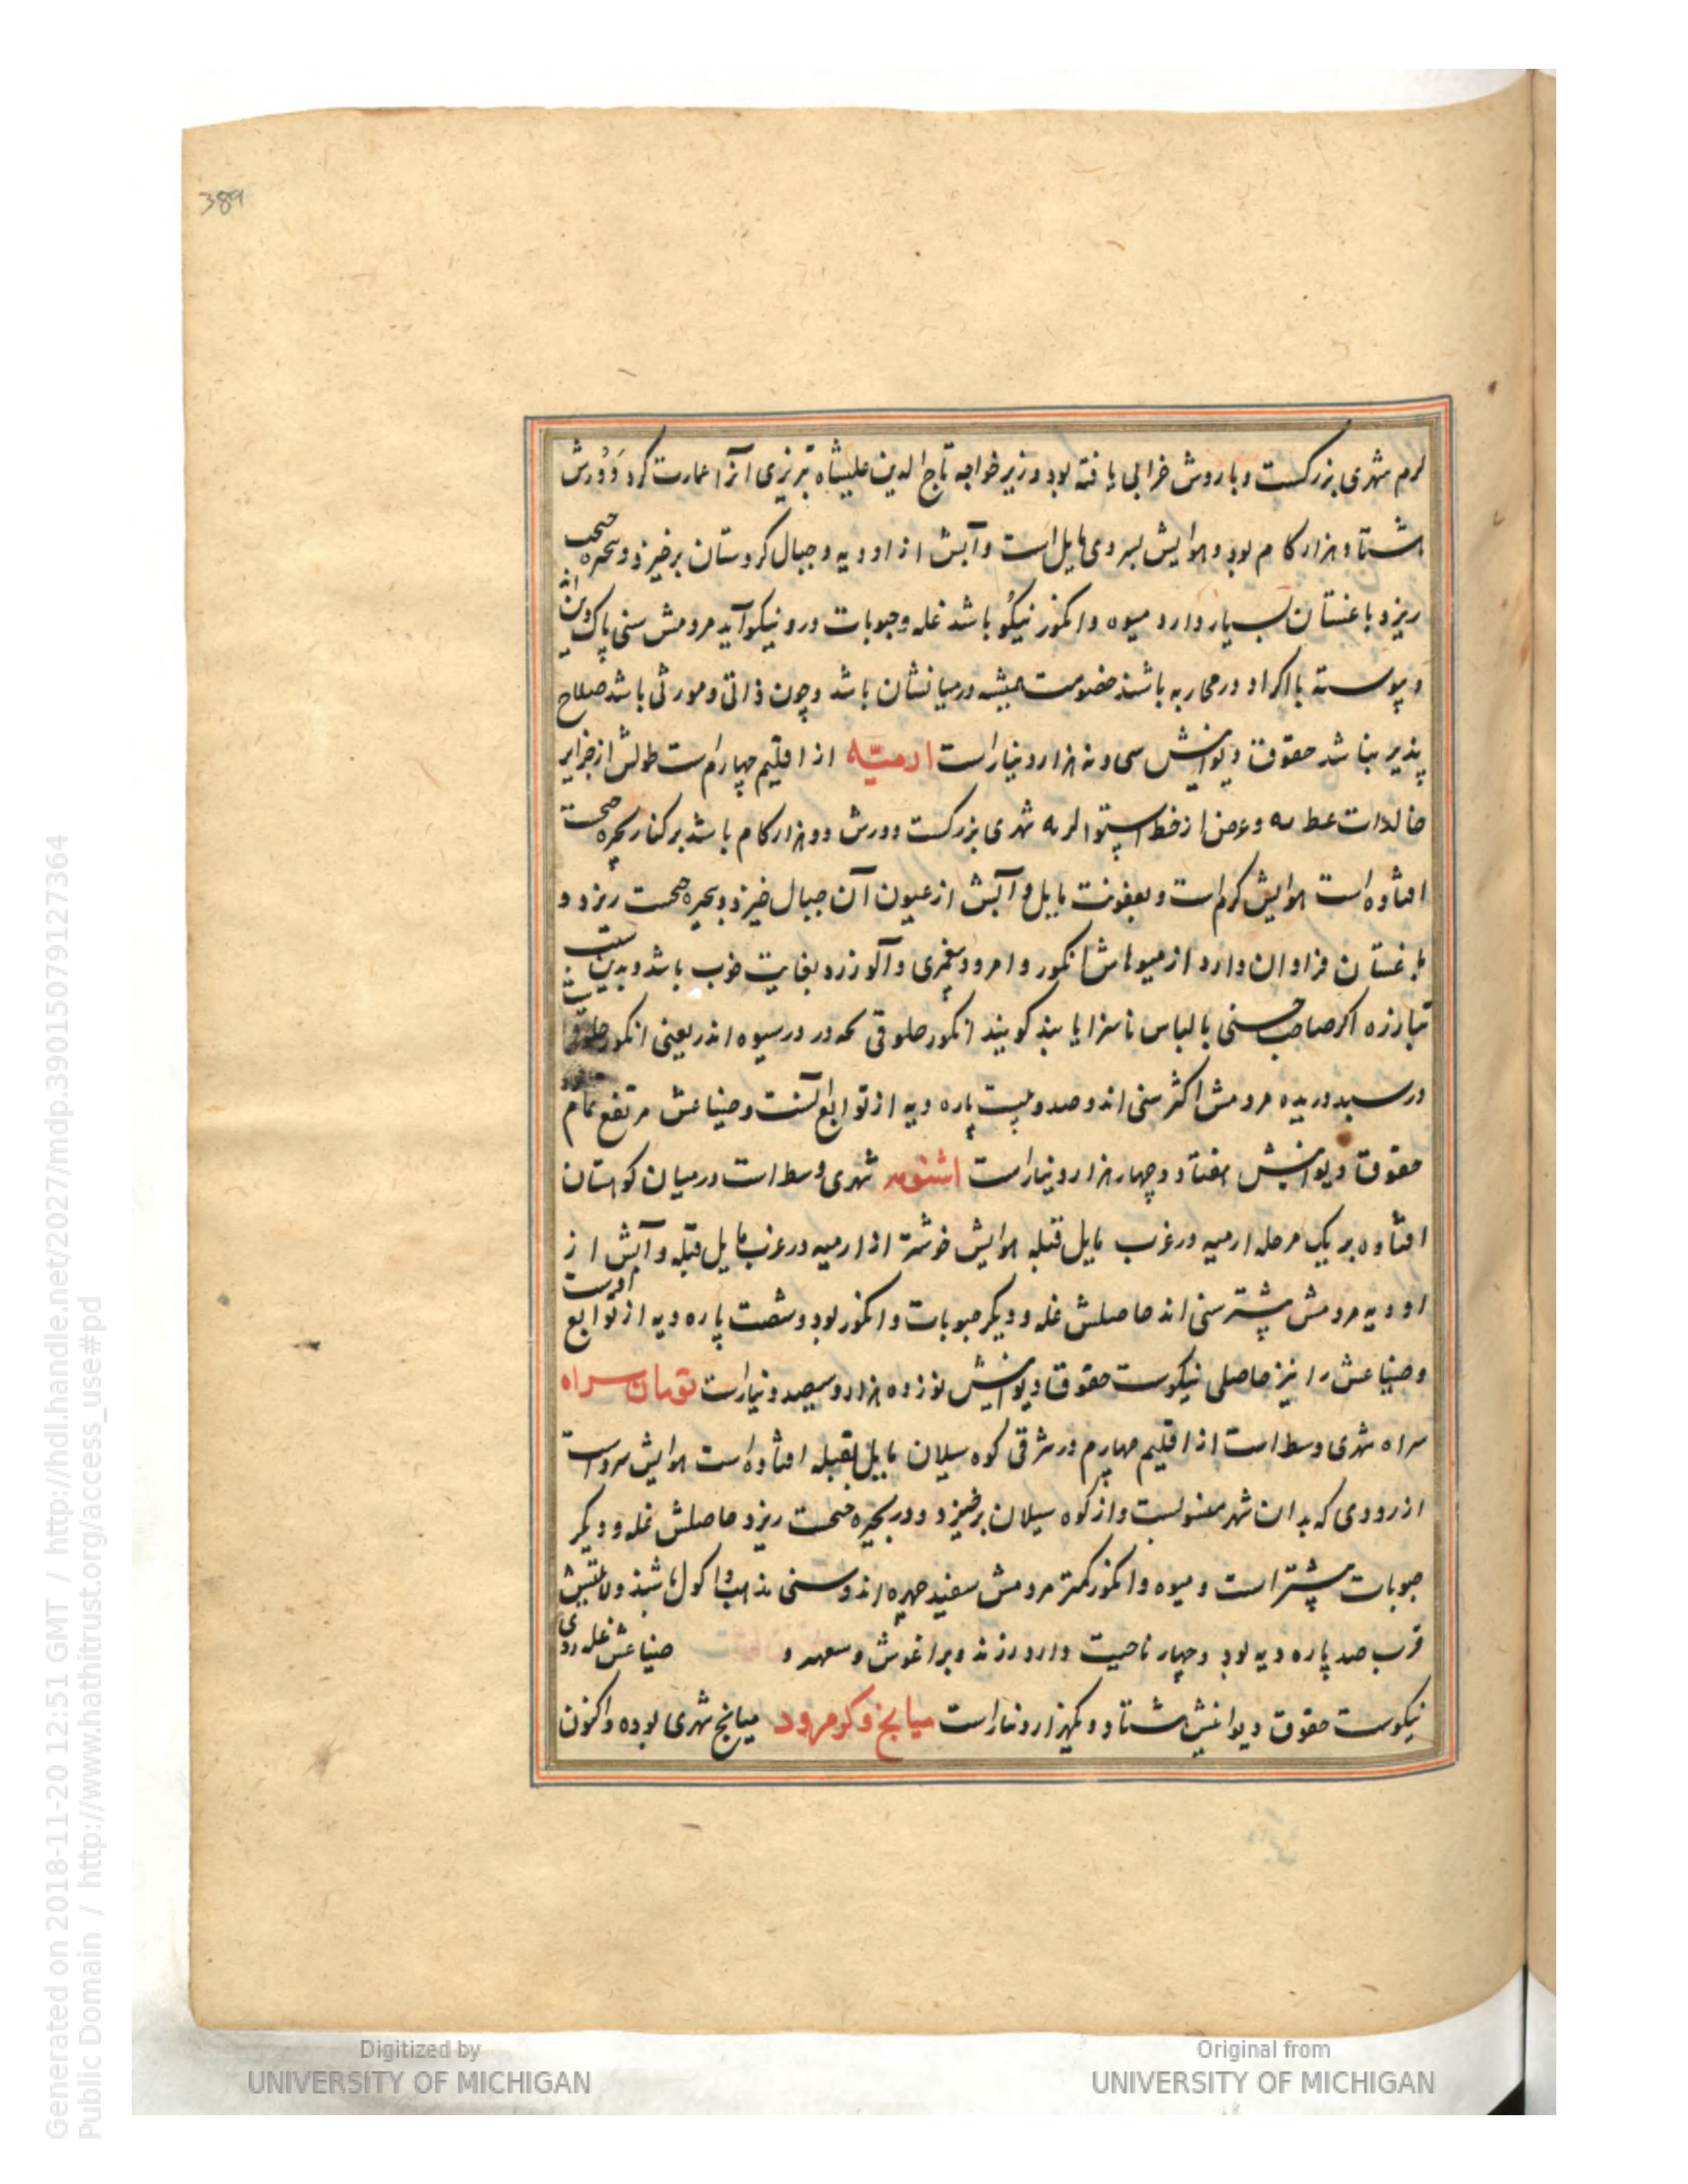 389
لرم شهری بزرگست و باروش خرابی یافته بود وزیر خواجه تاج الدین علیشاه تبریزی انرا عمارت کرد دورش
هشتاد هزار کام بود و هوایش بسردی مایل است و آبش از اودیه و جبال کردستان برخیزد و بحیره
ریزد باغستان بسیار دارد میوه و انکور نیکو باشد غله و حبوبات درو نیکو آید مردمش سنی پاک دین اند
و پیوسته با اکراد در محاربه باشند خصومت همیشه در میانشان باشد و چون ذاتی و موروثی باشد صلاح
پذیر نباشد حقوق دیوانیش سی و نه هزار دینار است ارمیّه از اقلیم چهارم است طولش از جزایر
خالدات عط مه و عرض از خط استوا لر مه شهری بزرگست دورش ده هزار کام باشد بر کنار بحیره
افتاده است هوایش کرم است و بعفونت مایل و آبش از عیون آن جبال خیزد و بحیره ریزد و
باغستان فراوان دارد از میوهاش انکور و امرود پیغمبری و آلو زرد بغایت خوب باشد و بدین
تبارزه اکر صاحب حسنی با لباس ناسزا یابند کویند انکور خلوقی در سبد اندر یعنی انکور خلوقی
در سبد دریده مردمش اکثر سنی اند و صد و بیست پاره دیه از توابع آنست و ضیاعش مرتفع تمام
حقوق دیوانیش هفتاد و چهار هزار دینار است اشنویه شهری وسط است در میان کوهستان
افتاده بر یک مرحله ارمیه در غرب مایل قبله هوایش خوشتر از ارمیه در غرب مایل قبله و آبش از
اودیه مردمش پیشتر سنی اند حاصلش غله و دیکر حبوبات و انکور بود و شصت پاره دیه از توابع اوست
و ضیاعش را نیز حاصلی نیکوست حقوق دیوانیش نوزده هزار و سیصد دینار است تومان سراه
سراه شهری وسط است از اقلیم چهارم در شرقی کوه سبلان مایل بقبله افتاده است هوایش سرد است
از رودی که بدان شهر منسوبست و از کوه سبلان برخیزد و در بحیره ریزد حاصلش غله و دیکر
حبوبات پیشتر است و میوه و انکور کمتر مردمش سفید چهره اند و سنی مذهب و اکول باشند ولایتش
قرب صد پاره دیه بود و چهار ناحیت دارد رزند و براغوش و سعهیر و ضیاعش غله روی
نیکوست حقوق دیوانیش هشتاد و یکهزار دینار است میانج و کرمرود میانج شهری بوده و اکنون
Digitized by
UNIVERSITY OF MICHIGAN
Original from
UNIVERSITY OF MICHIGAN
Generated on 2018-11-20 12:51 GMT / http://hdl.handle.net/2027/mdp.39015079127364
Public Domain / http://www.hathitrust.org/access_use#pd